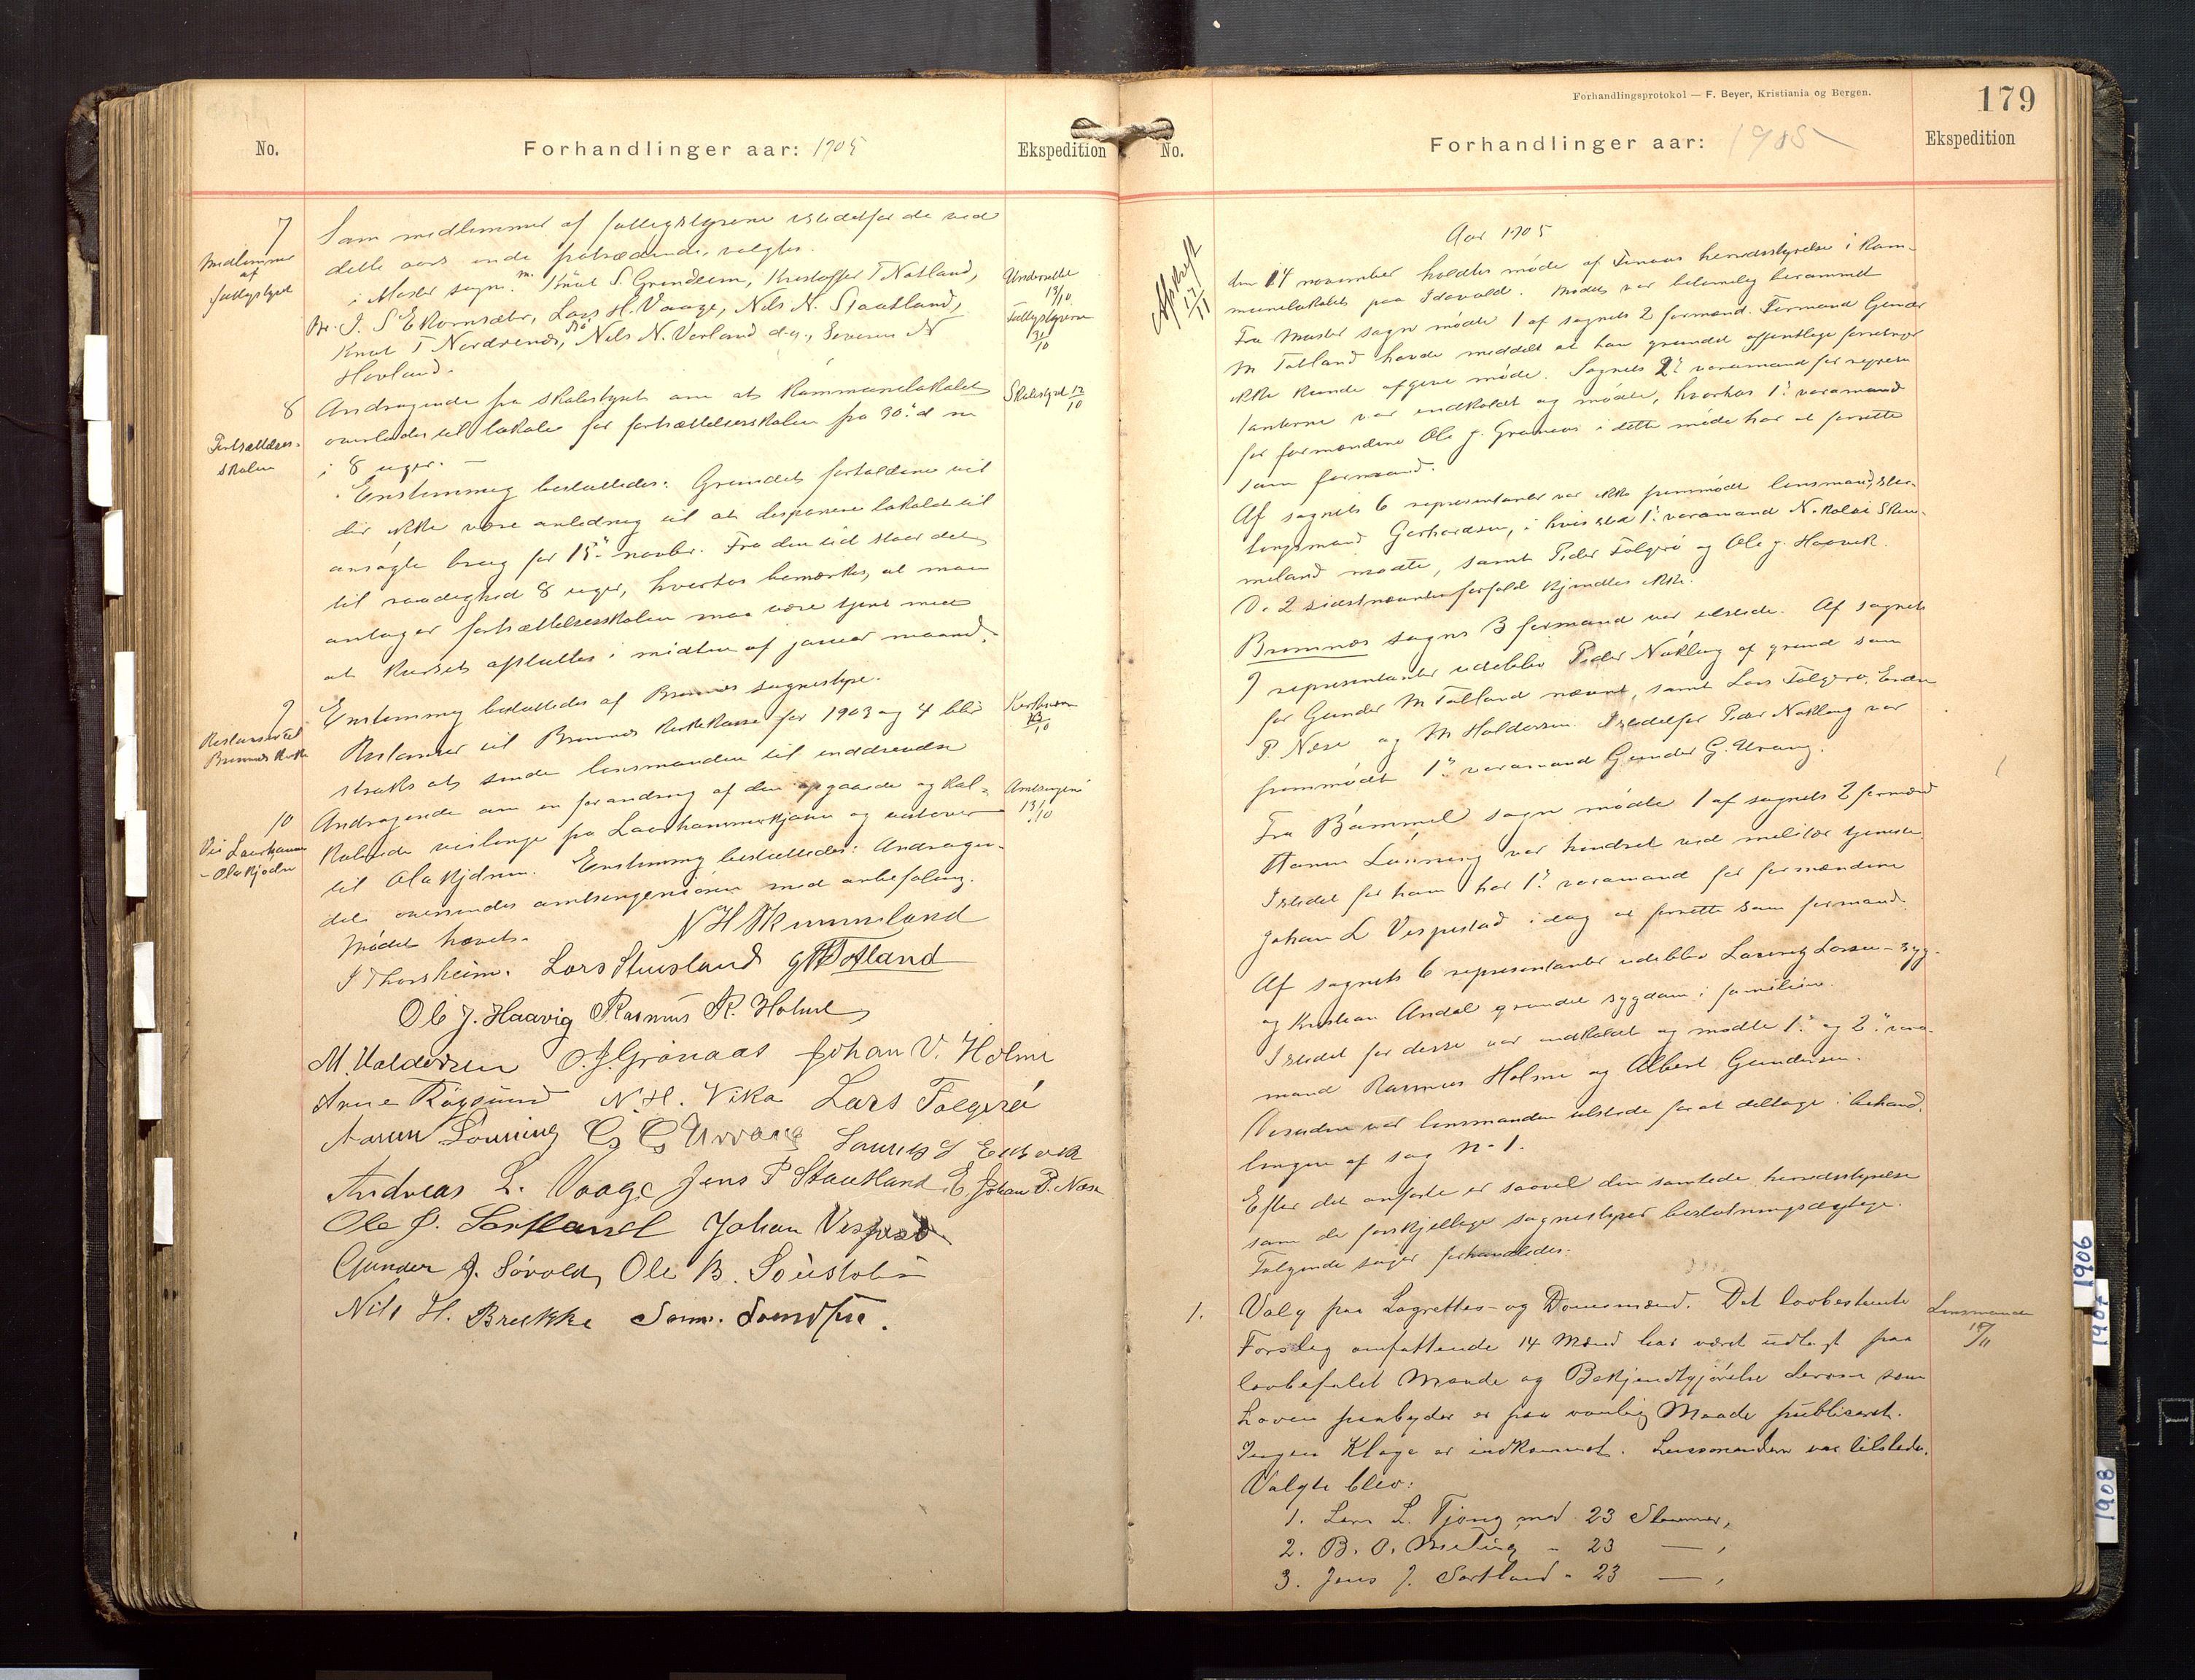 No.
Forhandlinger aar: 1905
Ekspedition
7
Medlemmer
af
fattigstyret
Som medlemmer af fattigstyrene istedetfor de ved
dette aars ende fratrædende, valgtes.
i Moster sogn: Knut S. Grindeim, Kristoffer T Notland,
Br. J. S Ekornsæter, Lars H. Vaage, Nils N. Stautland,
Knut T Nordrenæs, Nels N. Vorland d.y., Severin N
Hovland.
Underrettet
13/10
Fattigstyrerne
31/10
8
Fortsættelses-
skolen
Andragende fra skolestyret om at kommunelokalet
overlades til lokale for fortsættelsesskolen fra 30. d m
i 8 uger. —
Enstemmig besluttedes: Grundet forholdene vil
der ikke være anledning til at disponere lokalet til
ansøgte brug før 15. novbr. Fra den tid staar det
til raadighed 8 uger, hvorhos bemærkes, at man
antager fortsættelsesskolen maa være tjent med
at kurset afsluttes i midten af januar maaned.
Skolestyret 13/10
9
Restancer til
Bremnes kirke
Enstemmig besluttedes af Bremnes sognestyre.
Restancer til Bremnes kirkekasse for 1903 og 4 blir
straks at sende lensmanden til inddrivelse
Kasserer
13/10
10
Vei Laurhammer
- Olakjødn
Andragende om en forandring af den opgaaede og kal-
kulerede veilinge fra Laurhammerkjønn og vestover
til Olakjdnn. Enstemmig besluttedes: Andragen-
det oversendes amtsingeniøren med anbefaling.
Mødet hævet.
Amtsingeniør
13/10
N H Skimmeland
J Thorsheim. Lars Stuvland G M Totland
Ole J. Haavig Rasmus R. Holme
M. Haldorsen O. J. Grønaas Johan V. Holme
Arne Røgsund N. H. Vika Lars Folgerø
Aamun Lønning G G Urrang Laurits J Eidsvik
Andreas L. Vaage Jens P Stautland E. Johan P. Næse
Ole J. Sortland Johan Vespestad
Gunder J. Søvold, Ole B. Sønstabø
Nils H. Brekke Sam. Sandtue.
Forhandlingsprotokol — F. Beyer, Kristiania og Bergen.
179
No.
Forhandlinger aar: 1905
Ekspedition
Afskrift
17/11
Aar 1905
den 14 november holdtes møde af Finaas herredsstyrelse i kom-
munelokalet paa Idavold. Mødet var betimelig berammet
Fra Moster sogn mødte 1 af sognets 2 formænd. Formand Gunder
M Totland havde meddelt at han grundet offentlige forretninger
ikke kunde afgive møde. Sognets 2. varamand for repræsen
tanterne var indkaldt og mødte, hvorhos 1. varamand
for formændene Ole J. Grønaas i dette møde har at forrette
som formand.
Af sognets 6 repræsentanter var ikke fremmødt lensmand, stor-
tingsmand Gerhardsen, i hvis sted 1. varamand Nikolai Skim-
meland mødte, samt Peder Folgerø og Ole J. Haavik.
De 2 sidstnævntes forfald kjendtes ikke.
Bremnes sogns 3 formænd var tilstede. Af sognets
9 repræsentanter udeblev Peder Nøkling af grund som
for Gunder M Totland nævnt, samt Lars Folgerø, Endre
P. Næse og M Haldorsen. Istedetfor Peder Nøkling var
fremmødt 1. varamand Gunder G. Urang.
Fra Bømmel sogn mødte 1 af sognets 2 formænd
Aamun Lønning var hindret ved militær tjeneste
Istedet for ham har 1. varamand for formændene
Johan L Vespestad idag at forrette som formand.
Af sognets 6 repræsentanter udeblev Lauritz Larsen - syg-
og Kristian Andal grundet sygdom i familien.
Istedet for desse var indkaldt og mødte 1. og 2. vara-
mand Rasmus Holme og Albert Gundersen.
Desuden var lensmanden tilstede for at deltage i behand-
lingen af sag n. 1.
Efter det anførte er saavel den samlede herredsstyrelse
som de forskjellige sognestyrer beslutningsdygtige.
Følgende sager forhandledes:
1. Valg paa Lagrettes- og Domsmænd. Det lovbestemte
Forslag omfattende 14 Mænd har været udlagt paa
lovbefalet Maade og Bekjendtgjørelse derom som
Loven paabyder er paa vanlig Maade publiceret.
Ingen Klage er indkommet. Lensmanden var tilstede.
Valgte blev:
1. Lars L. Tjong med 23 Stemmer,
2. B. O. Meling " 23 — ,
3. Jens J. Sortland " 23 — ,
Lensmanden
17/11
1906
1907
1908